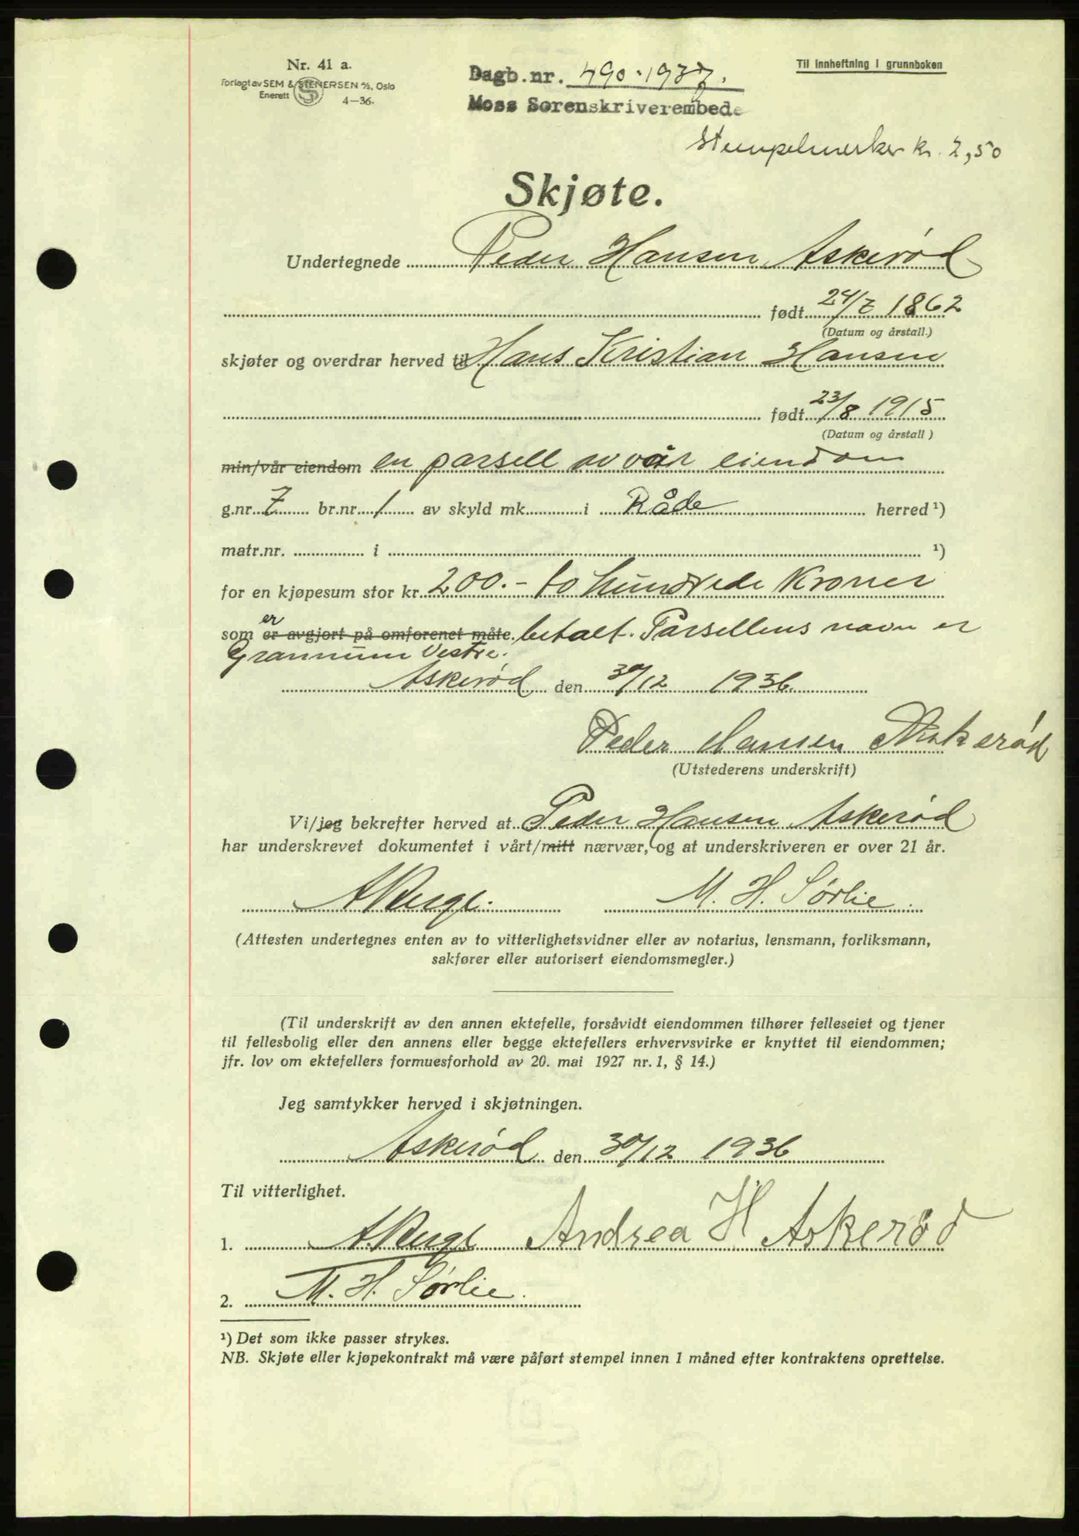 Nr. 41 a.
Forlagt av SEM & STENERSEN A/S, Oslo
Enerett 4—36.
Dagb.nr. 490-1937.
Moss Sorenskriverembede
Til innheftning i grunnboken
Stempelmerker kr. 2,50
Skjøte.
Undertegnede Peder Hansen Askerød
født 24/7 1862
(Datum og årstall.)
skjøter og overdrar herved til Hans Kristian Hansen
født 23/8 1915
(Datum og årstall)
min/vår eiendom en parsell av vår eiendom
g.nr. 7 br.nr. 1 av skyld mk. i Råde herred ¹)
matr.nr. i ¹)
for en kjøpesum stor kr. 200.- to hundrede Kroner
som er avgjort på omforenet måte. er betalt. Parsellens navn er
Grannum Vestre.
Askerød den 30/12 1936.
Peder Hansen Askerød
(Utstederens underskrift)
Vi/jeg bekrefter herved at Peder Hansen Askerød
har underskrevet dokumentet i vårt/mitt nærvær, og at underskriveren er over 21 år.
M. H. Sørlie.
(Attesten undertegnes enten av to vitterlighetsvidner eller av notarius, lensmann, forliksmann,
sakfører eller autorisert eiendomsmegler.)
(Til underskrift av den annen ektefelle, forsåvidt eiendommen tilhører felleseiet og tjener
til fellesbolig eller den annens eller begge ektefellers erhvervsvirke er knyttet til eiendommen;
jfr. lov om ektefellers formuesforhold av 20. mai 1927 nr. 1, § 14.)
Jeg samtykker herved i skjøtningen.
Askerød den 30/12 1936
Til vitterlighet.
1. Andrea H Askerød
2. M. H. Sørlie.
¹) Det som ikke passer strykes.
NB. Skjøte eller kjøpekontrakt må være påført stempel innen 1 måned efter kontraktens oprettelse.